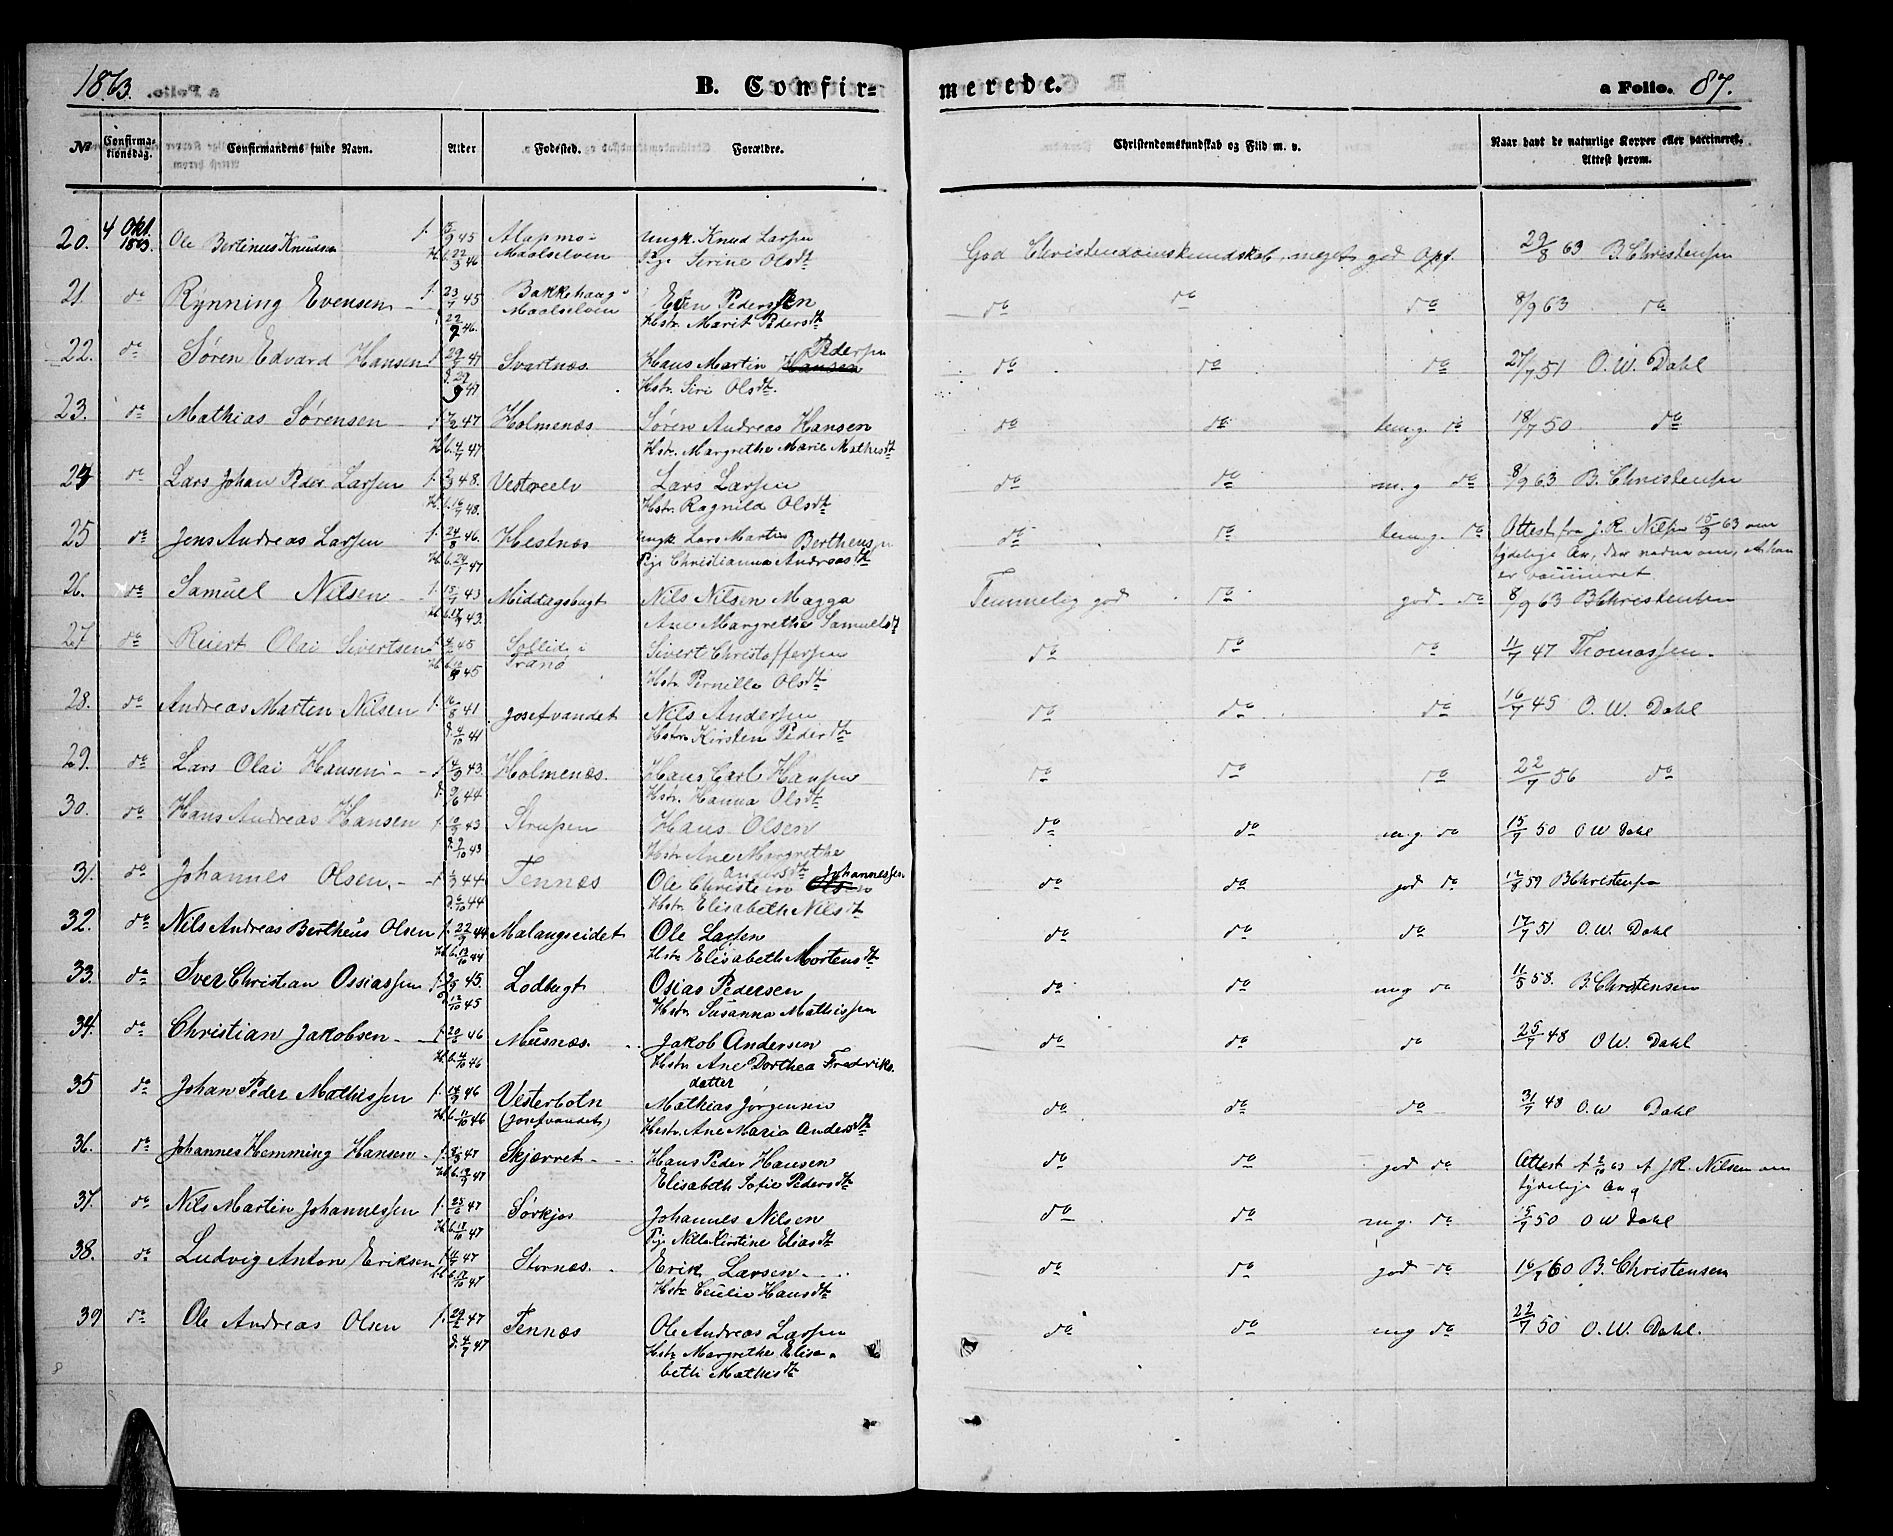 1863.
B. Confir-
merede.
a Folio. 87.
No
Confirma-
tionsdag.
Confirmandens fulde Navn.
Alder
Fodested.
Forældre.
Christendomskundskab og Flid m. v.
Naar havt de naturlige Kopper eller vaccineret.
Attest herom.
20. 4 Okt. 1863. Ole Bertinus Knudsen f. 5/9 45 Alapmo i Ungk. Knud Larsen
H. d. 22/3 46 Maalselven Pige Serine Olsdt
God Christendomskundskab, meget god Opf. 29/8 63 B. Christensen
21. do Rynning Evensen f. 23/7 45 Bakkehaug i Even Pedersen
22/2 46. Maalselven Hstr. Marit Pedersdt
do do do 8/9 63 do
22. do Søren Edvard Hansen f. 47 Svartnæs. Hans Martin Hansen Pedersen
47 Hstr. Siri Olsdt.
do do do 27/7 51 O. W. Dahl
23. do Mathias Sørensen f. 47 Holmenæs. Søren Andreas Hansen
H. d. 4/7 47 Hstr. Margrethe Marie Mathisdt
do do tem. g. do 18/7 50 do
24 do Lars Johan Peder Larsen f. 2/3 48. Vestreelv Lars Larsen
H. d. 16/7 48. Hstr. Ragnild Olsdt
do do m. g do 8/9 63 B. Christensen
25 do Jens Andreas Larsen f. 24/8 46. Hestnæs Ungk. Lars Martin Berthensen
H. d. 24/7 47 Pige Christianna Andreasdt
do do tem. g. do Attest fra J. R. Nilsen 15/9 63 om
tydelige Ar, der
er vaccineret
26. do Samuel Nilsen f. 15/7 43 Middagsbugt Nils Nilsen Magga
H. d. 43. Ane Margrethe Samuelsdt
Temmelig god do god do 8/9 63 B Christensen
27. do Reiert Olai Sivertsen f. 45 Sollid i Sivert Christoffersen
H. d. 45 Tranø Hstr. Pernilla Olsdt
do do do 11/7 47 Thomassen.
28. do Andreas Martin Nilsen f. 16/8 41 Josefvandet Nils Andersen
d. 4/10 41 Hstr. Kirsten Pedersdt
do do do 16/7 45 O. W. Dahl
29. do Lars Olai Hansen 14/3 43. Holmenæs. Hans Carl Hansen
d. 9/6 44 Hstr. Hanna Olsdt
do do do 22/7 56 do
30. do Hans Andreas Hansen f. 10/9 43 Strupen Hans Olsen
d. 2/10 43 Hstr. Ane Margrethe
Andersdt
do do m. g do 15/7 50 O W Dahl
31. do Johannes Olsen f. 1/3 44 Tennæs Ole Christein Olsen Johannessen
d. 6/10 44 Hstr. Elisabeth Nilsdt
do do god do 12/8 59 B Christensen
32. do Nils Andreas Bertheus Olsen f. 22/7 44 Malangseidet Ole Larsen
H. d. 13/10 44 Hstr. Elisabeth Mortensdt
do do do 17/7 51 O. W. Dahl
33. do Iver Christian Ossiassen f. 3/5 45. Lodbugt Osias Pedersen
d. 12/10 45 Hstr. Susanna Mathissen
do do mg do 11/5 58. B. Christensen
34. do Christian Jakobsen f. 20/6 46 Musnæs. Jakob Andersen
H. d. 4/10 46 Hstr. Ane Dorthea Frederiks.
datter
do do do 25/7 48 O W. Dahl
35 do Johan Peder Mathissen f. 14/9 46 Vesterbotn Mathias Jørgensen
H. d. 11/10 46 (Josefvandet) Hstr. Ane Maria Andersdt
do do do 31/7 48 O. W Dahl
36. do Johannes Hemming Hansen f. 47 Skjærret Hans Peder Hansen
H. d. 47 Elisabeth Sofie Pedersdt
do do god do Attest 2/10 63 af J. R. Nilsen om
tydelige Ar
37. do Nils Martin Johannessen f. 25/6 47 Sørkjos Johannes Nilsen
H. d. 17/10 47 Pige Nilla Kirstine Eliasdt
do do mg. do 15/7 50 O W Dahl
38. do Ludvig Anton Eriksen f. 4/7 47 Stornæs. Erik Larsen
H. d. 17/10 47 Hstr Cecilie Hansdt
do do god do 16/9 60 B. Christensen
39 do Ole Andreas Olsen f. 29/2 47 Tennæs Ole Andreas Larsen
d. 4/7 47 Hstr Margrethe Elisa-
beth Mathisdt
do do mg do 22/7 50 O. W. Dahl.